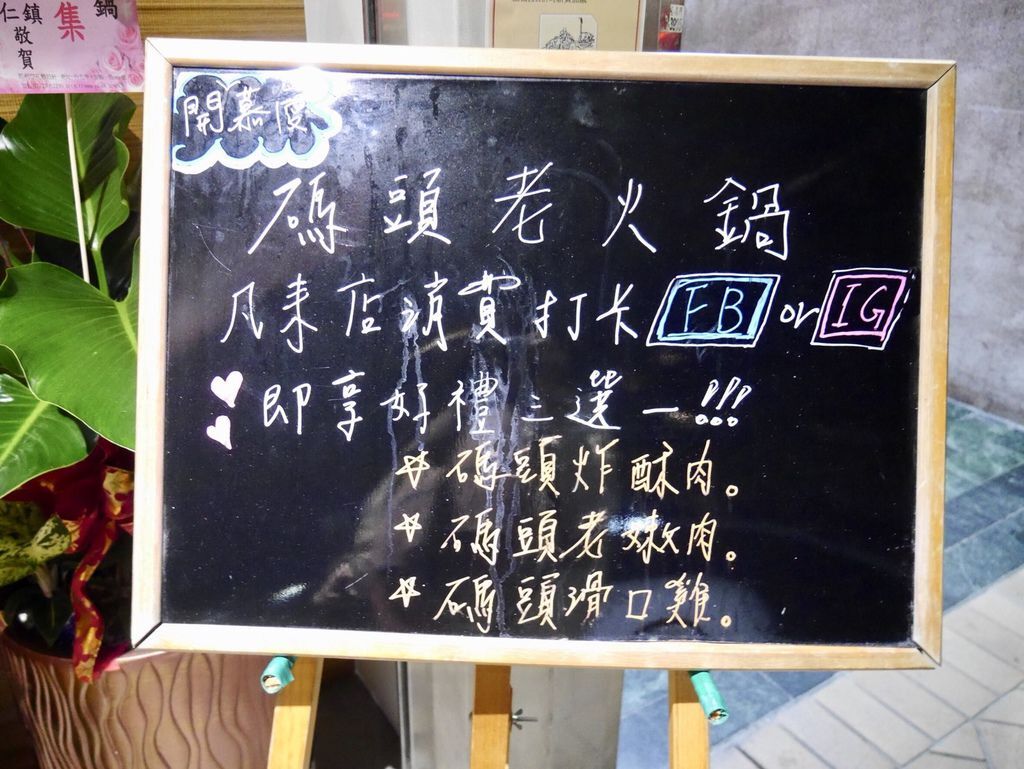 鍋
集
鎮
仁
敬賀
開慕慶
碼頭老火鍋
凡來店消費打卡 FB or IG
即享好禮三選一!!!
☆ 碼頭炸酥肉。
☆ 碼頭老嫩肉。
☆ 碼頭滑口雞。